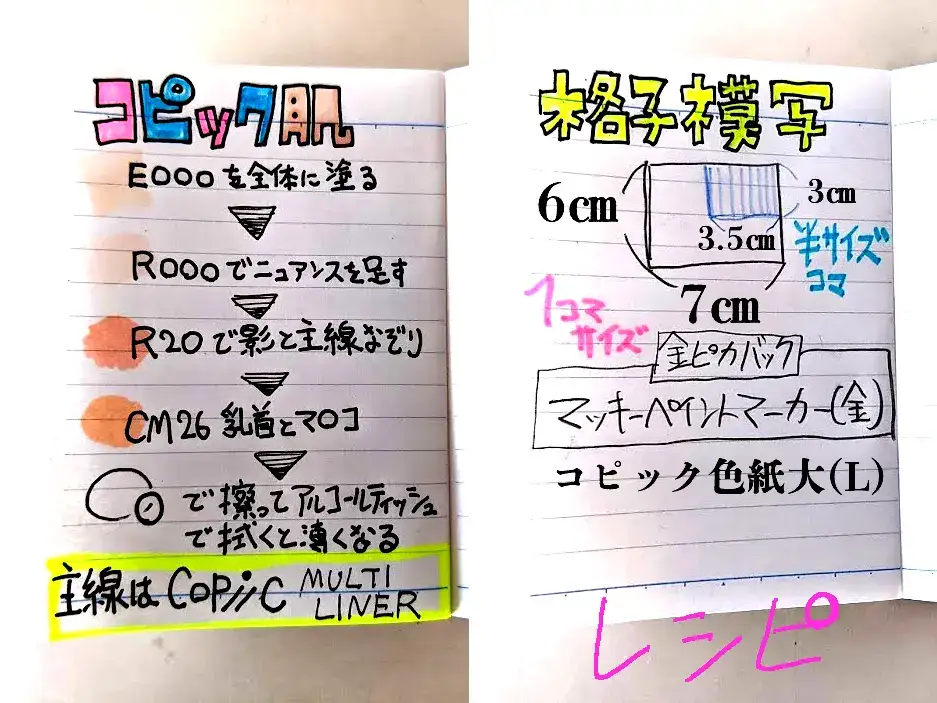 コピック肌
E000を全体に塗る
R000でニュアンスを足す
R20で影と主線なぞり
CM26 乳首とマロコ
で擦ってアルコールティッシュ
で拭くと薄くなる
主線は Copic MULTI LINER
格子模写
6cm
3cm
3.5cm
半サイズ
コマ
7cm
1コマ
サイズ
金ピカバック
マッキーペイントマーカー(金)
コピック色紙大(L)
レシピ